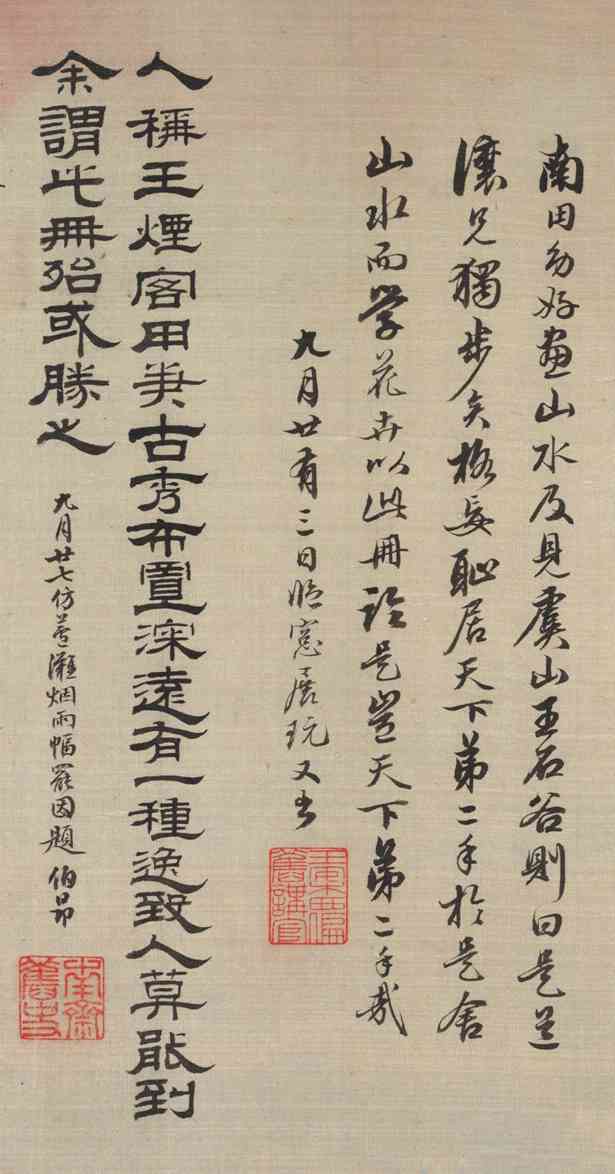 南田幼好畫山水及見虞山王石谷則曰是道
讓兄獨步矣格妄恥居天下第二手於是舍
山水而學花卉以此冊論是豈天下第二手哉
九月廿有三日晴窓展玩又書
人稱王煙客用筆古秀布置深遠有一種逸致人莫能到
余謂此冊殆或勝之
九月廿七仿蘆灘烟雨幅罷因題 伯昂
南齋舊史